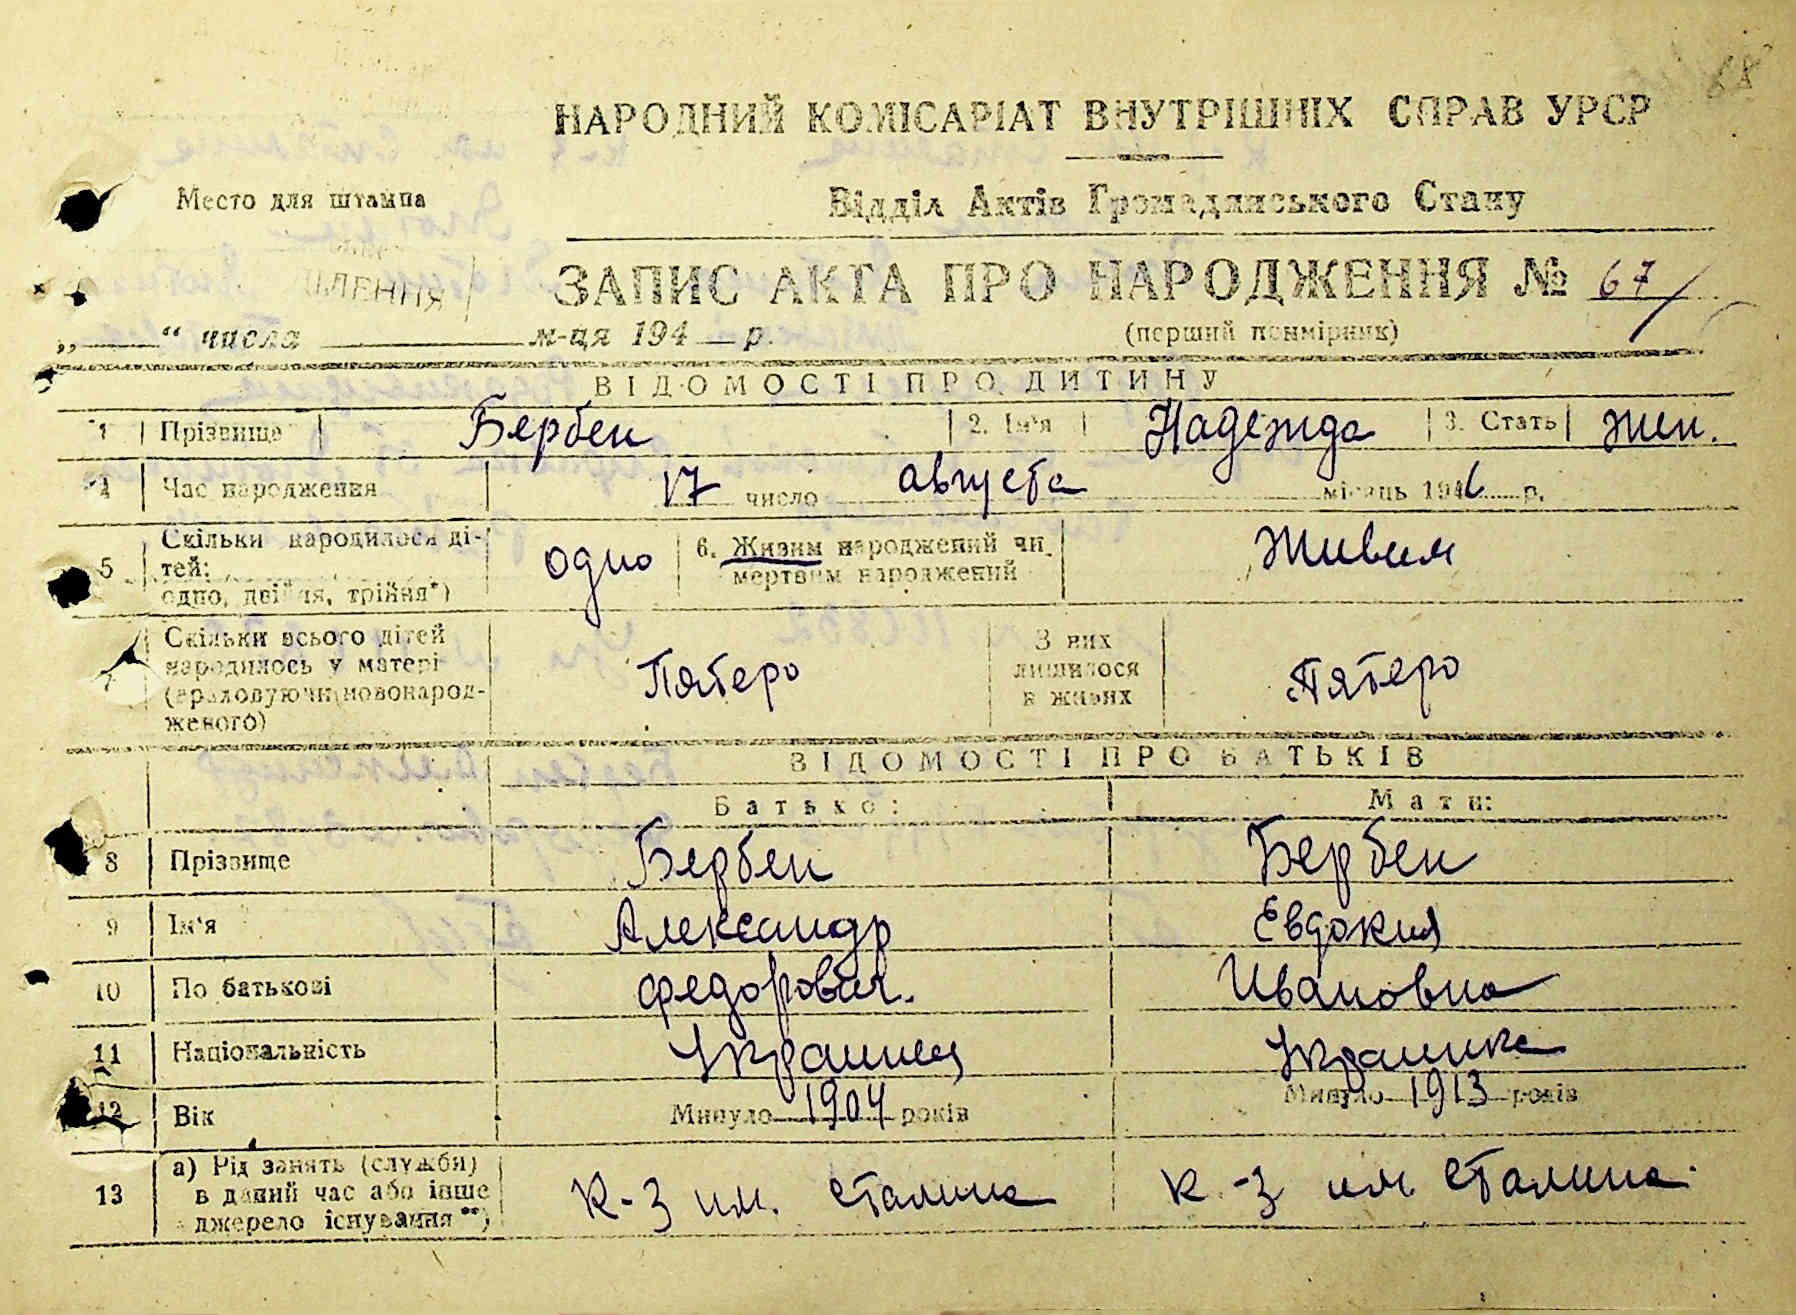 88
НАРОДНИЙ КОМІСАРІАТ ВНУТРІШНІХ СПРАВ УРСР
Место для штампа
Відділ Актів Громадянського Стану
ЗАПИС АКТА ПРО НАРОДЖЕННЯ № 67
„ “ числа м-ця 194 р.
(перший примірник)
ВІДОМОСТІ ПРО ДИТИНУ
1 Прізвище Бербен 2. Ім'я Надежда 3. Стать жен.
4 Час народження 17 число августа місяць 1941 р.
5 Скільки народилося ді-
тей:
одно, двійня, трійня*) одно 6. Живим народжений чи
мертвим народжений Живим
7 Скільки всього дітей
народилось у матері
(враховуючи новонарод-
женого) Пятеро З них
лишилося
в живих Пятеро
ВІДОМОСТІ ПРО БАТЬКІВ
Батько: Мати:
8 Прізвище Бербен Бербен
9 Ім'я Александр Евдокия
10 По батькові Федорович. Ивановна
11 Національність Украинец Украинка
12 Вік Минуло 1904 років Минуло 1913 років
13 а) Рід занять (служби)
в даний час або інше
джерело існування**) К-з им. Сталина К-з им. Сталина